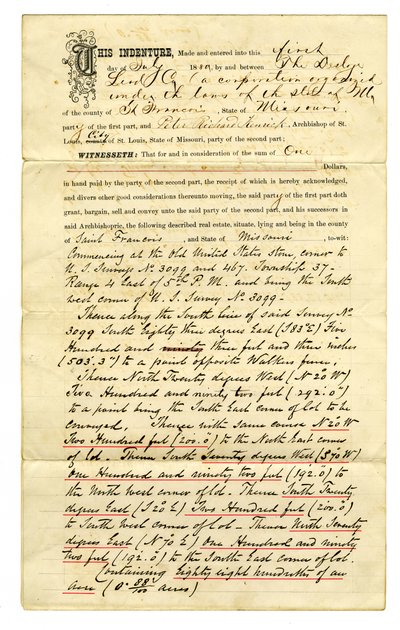 THIS INDENTURE, Made and entered into this first
day of July 1889, by and between The Desloge
Lead Co (a corporation organized
under the laws of the state of Mo
of the county of St Francois, State of Missouri
party of the first part, and Peter Richard Kenrick, Archbishop of St.
Louis, City county of St. Louis, State of Missouri, party of the second part;
WITNESSETH: That for and in consideration of the sum of One
Dollars,
in hand paid by the party of the second part, the receipt of which is hereby acknowledged,
and divers other good considerations thereunto moving, the said party of the first part doth
grant, bargain, sell and convey unto the said party of the second part, and his successors in
said Archbishopric, the following described real estate, situate, lying and being in the county
of Saint Francois, and State of Missouri, to-wit:
Commencing at the Old United States stone, corner to
U. S. Surveys No 3099 and 467. Township 37-
Range 4 East of 5th P. M. and being the South
west corner of U. S. Survey No 3099-
Thence along the South line of said Survey No
3099 South Eighty three degrees East (S 83° E) Five
Hundred and ninety three feet and three inches
(503'.3") to a point opposite Walkers fence.
Thence North Twenty degrees West (N 20° W)
Two Hundred and ninety two feet (292.0")
to a point being the South East corner of lot to be
conveyed, Thence with same course N 20° W
Two Hundred feet (200.0) to the North East corner
of lot. Thence South Seventy degrees West (S 70° W)
One Hundred and ninety two feet (192.0) to
the North west corner of lot. Thence South Twenty
degrees East (S 20° E) Two Hundred feet (200.0)
to South west corner of lot. Thence North Seventy
degrees East (N 70° E) One Hundred and ninety
two feet (192.0) to the South-East corner of lot.
Containing Eighty eight hundredths of an
acre (0. 88/100 acres)